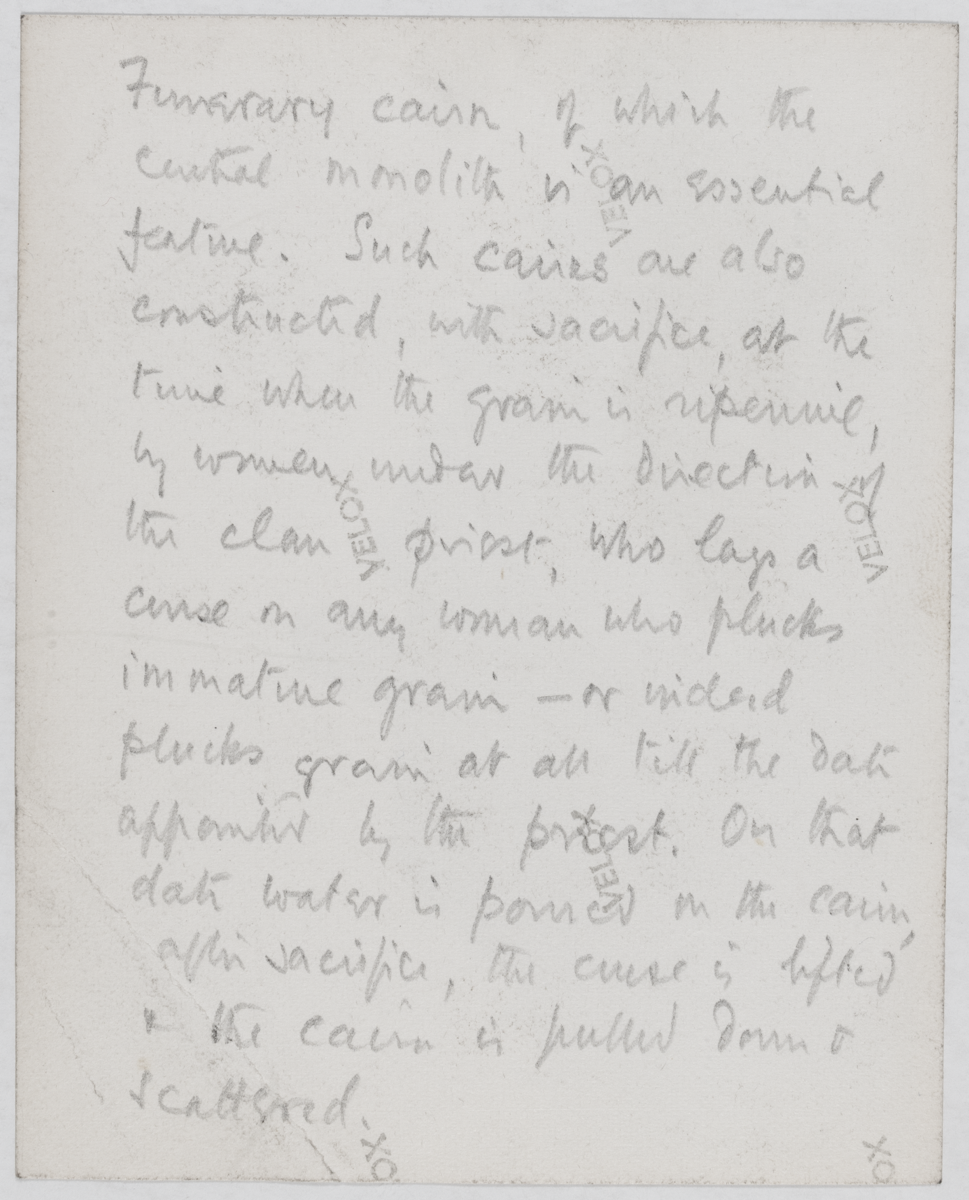 Funerary cairn, of which the
central monolith is an essential
feature. Such cairns are also
constructed, with sacrifice, at the
time when the grain is ripening,
by women under the direction of
the clan priest, who lays a
curse on any woman who plucks
immature grain — or indeed
plucks grain at all till the date
appointed by the priest. On that
date water is poured on the cairn,
after sacrifice, the curse is lifted
& the cairn is pulled down &
scattered.
VELOX
VELOX
VELOX
VELOX
OX
OX